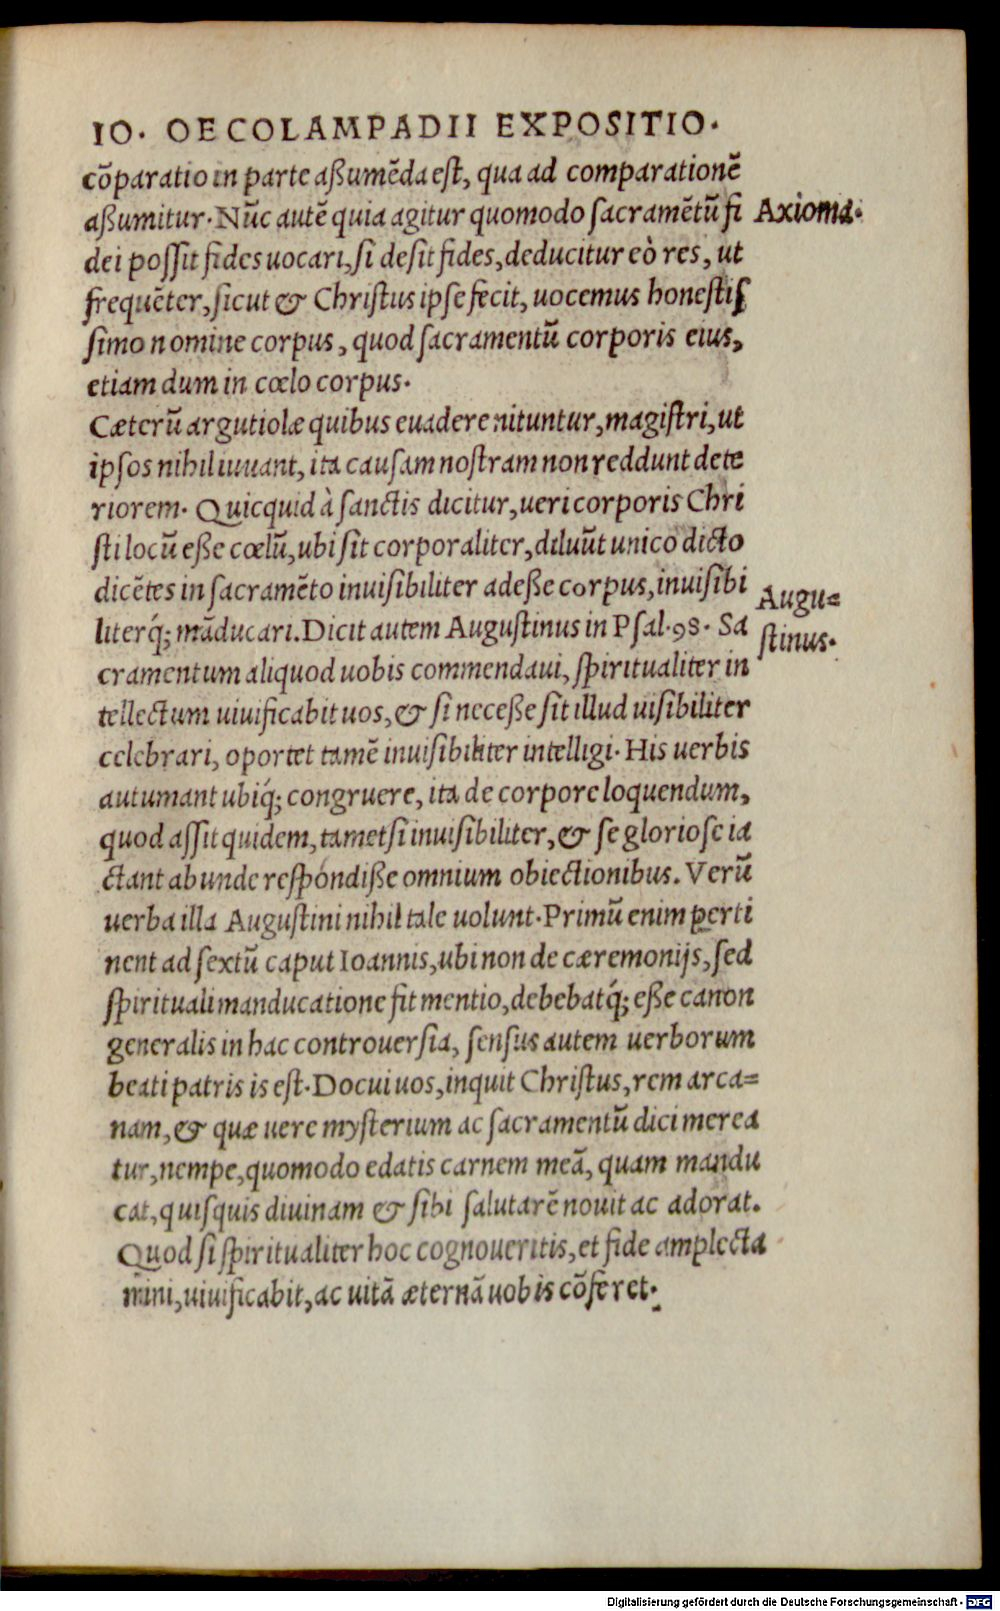 IO. OECOLAMPADII EXPOSITIO.
cōparatio in parte aßumēda est, qua ad comparationē
aßumitur. Nūc autē quia agitur quomodo sacramētū fi
Axioma.
dei possit fides uocari, si desit fides, deducitur eò res, ut
frequēter, sicut & Christus ipse fecit, uocemus honestis
simo nomine corpus, quod sacramentū corporis eius,
etiam dum in cœlo corpus.
Cæterū argutiolæ quibus euadere nituntur, magistri, ut
ipsos nihil iuuant, ita causam nostram non reddunt dete
riorem. Quicquid à sanctis dicitur, ueri corporis Chri
sti locū eße cœlū, ubi sit corporaliter, diluūt unico dicto
dicētes in sacramēto inuisibiliter adeße corpus, inuisibi
Augu=
literq́; māducari. Dicit autem Augustinus in Psal. 98. Sa
stinus.
cramentum aliquod uobis commendaui, spiritualiter in
tellectum uiuificabit uos, & si neceße sit illud uisibiliter
celebrari, oportet tamē inuisibiliter intelligi. His uerbis
autumant ubiq́; congruere, ita de corpore loquendum,
quod assit quidem, tametsi inuisibiliter, & se gloriose ia
ctant abunde respondiße omnium obiectionibus. Verū
uerba illa Augustini nihil tale uolunt. Primū enim ꝑerti
nent ad sextū caput Ioannis, ubi non de cæremonijs, sed
spirituali manducatione fit mentio, debebatq́; eße canon
generalis in hac controuersia, sensus autem uerborum
beati patris is est. Docui uos, inquit Christus, rem arca=
nam, & quæ uere mysterium ac sacramentū dici merea
tur, nempe, quomodo edatis carnem meā, quam mandu
cat, quisquis diuinam & sibi salutarē nouit ac adorat.
Quod si spiritualiter hoc cognoueritis, et fide amplecta
mini, uiuificabit, ac uitā æternā uobis cōferet.
Digitalisierung gefördert durch die Deutsche Forschungsgemeinschaft - DFG